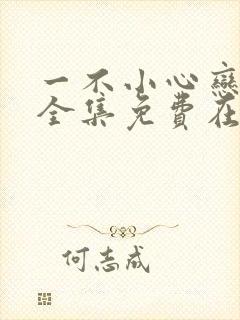 一不小心戀
全集免費在
何志成